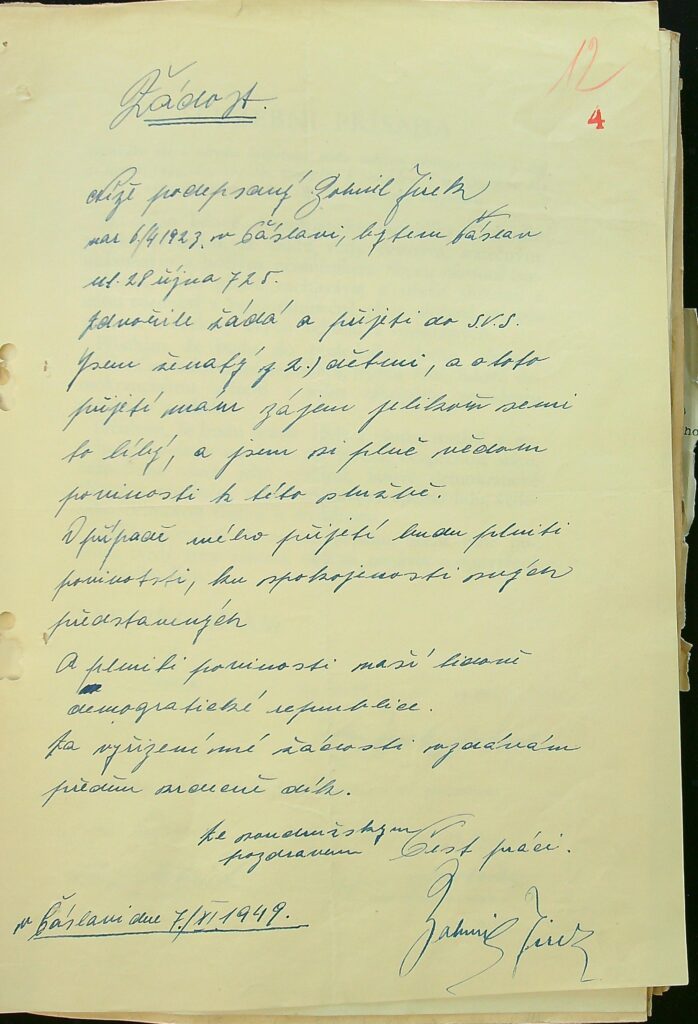 12
4
Žádost.
Níže podepsaný Bohmil Jirek
nar 6/4 1923. v Čáslavi, bytem Čáslav
ul. 28 října 725.
Zdvořile žádá o přijeti do S.V.S.
Jsem ženatý z 2.) dětmi, a o toto
přijetí mám zájem jelikož semi
to líbý, a jsem si plně vědom
povinosti k této službě.
V případě mého přijetí budu plniti
povinotsti, ku spokojenosti svých
představených
A plniti povinosti naší lidově
demogratické republice.
Za vyřízení mé žádosti vzdávám
předem srdečně dík.
Ze soudružským
pozdravem Čest práci.
v Čáslavi dne 7./XI. 1949.
Bohmil Jirek